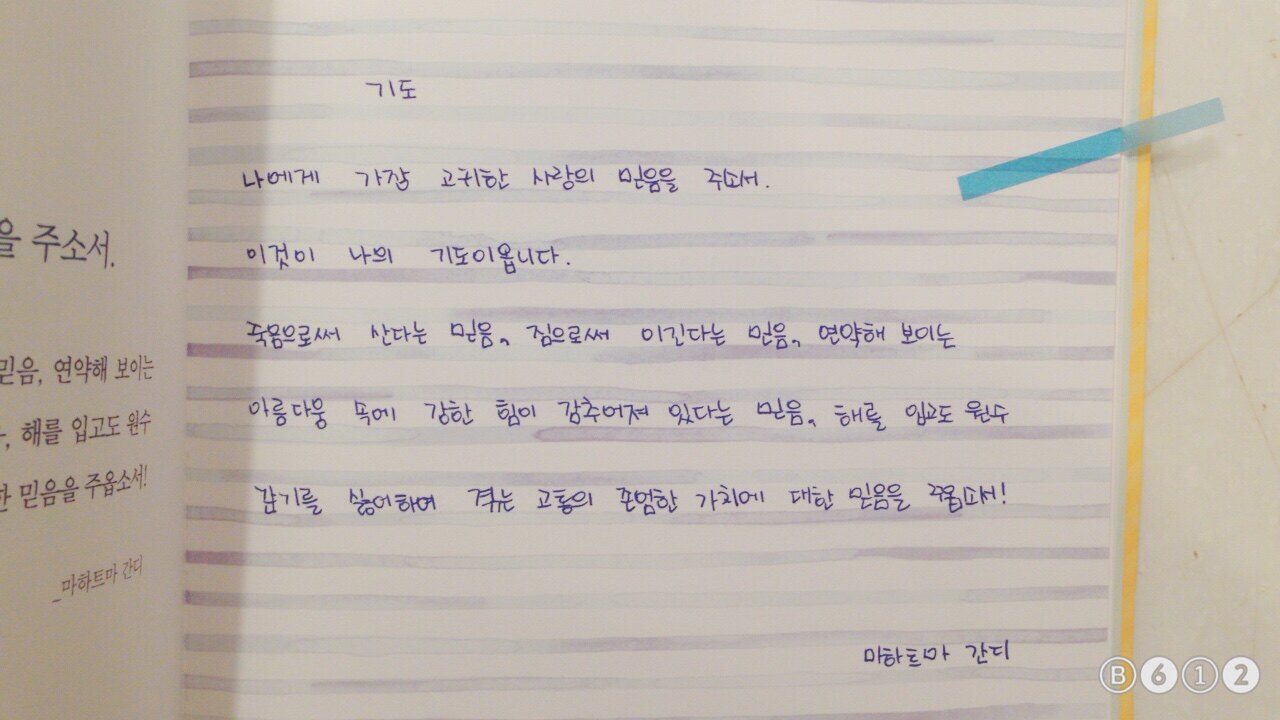 을 주소서.
믿음, 연약해 보이는
, 해를 입고도 원수
한 믿음을 주옵소서!
_마하트마 간디
기도
나에게 가장 고귀한 사랑의 믿음을 주소서.
이것이 나의 기도이옵니다.
죽음으로써 산다는 믿음, 짐으로써 이긴다는 믿음, 연약해 보이는
아름다움 속에 강한 힘이 감추어져 있다는 믿음, 해를 입고도 원수
갚기를 싫어하여 겪는 고통의 존엄한 가치에 대한 믿음을 주옵소서!
마하트마 간디
B612